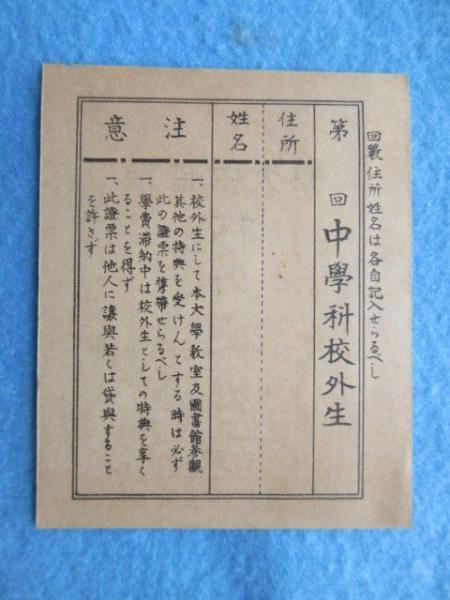 回數住所姓名は各自記入せらるべし
第　回中學科校外生
住所
姓名
注意
一、校外生にして本大學教室及圖書館參觀
其他の特典を受けんとする時は必ず
此の證票を携帶せらるべし
一、學費滯納中は校外生としての特典を享く
ることを得ず
一、此證票は他人に讓與若くは貸與すること
を許さず